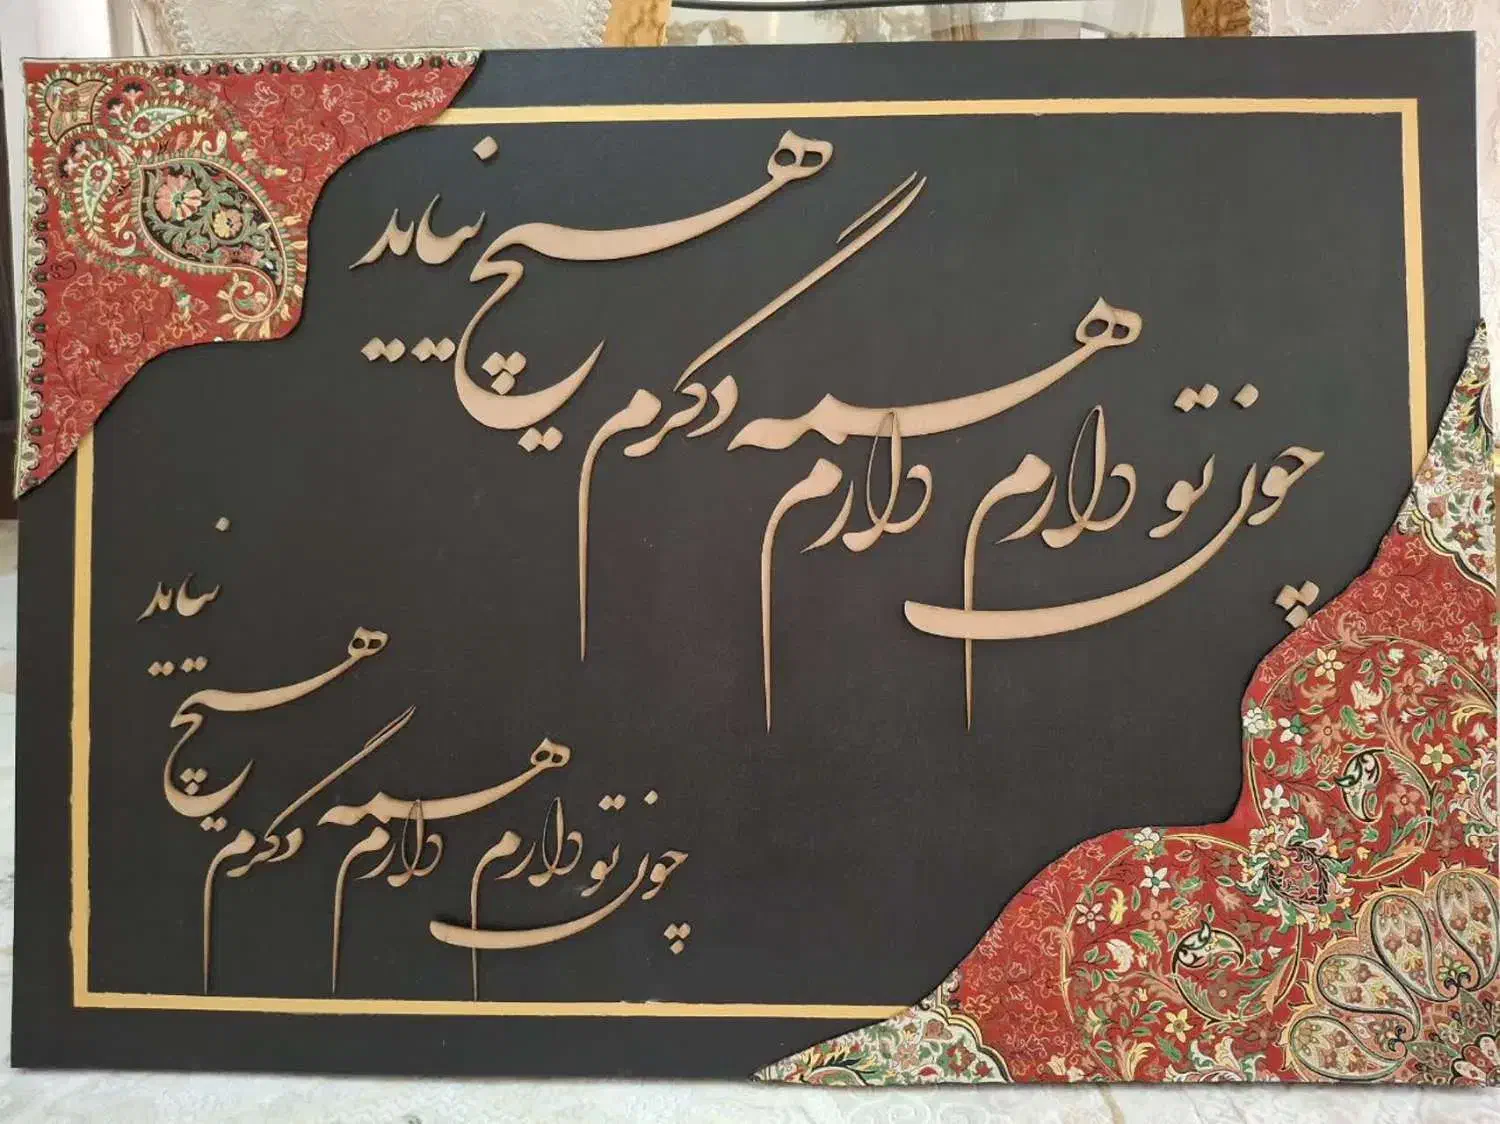 چون تو دارم همه دارم دگرم هیچ نباید
چون تو دارم همه دارم دگرم هیچ نباید